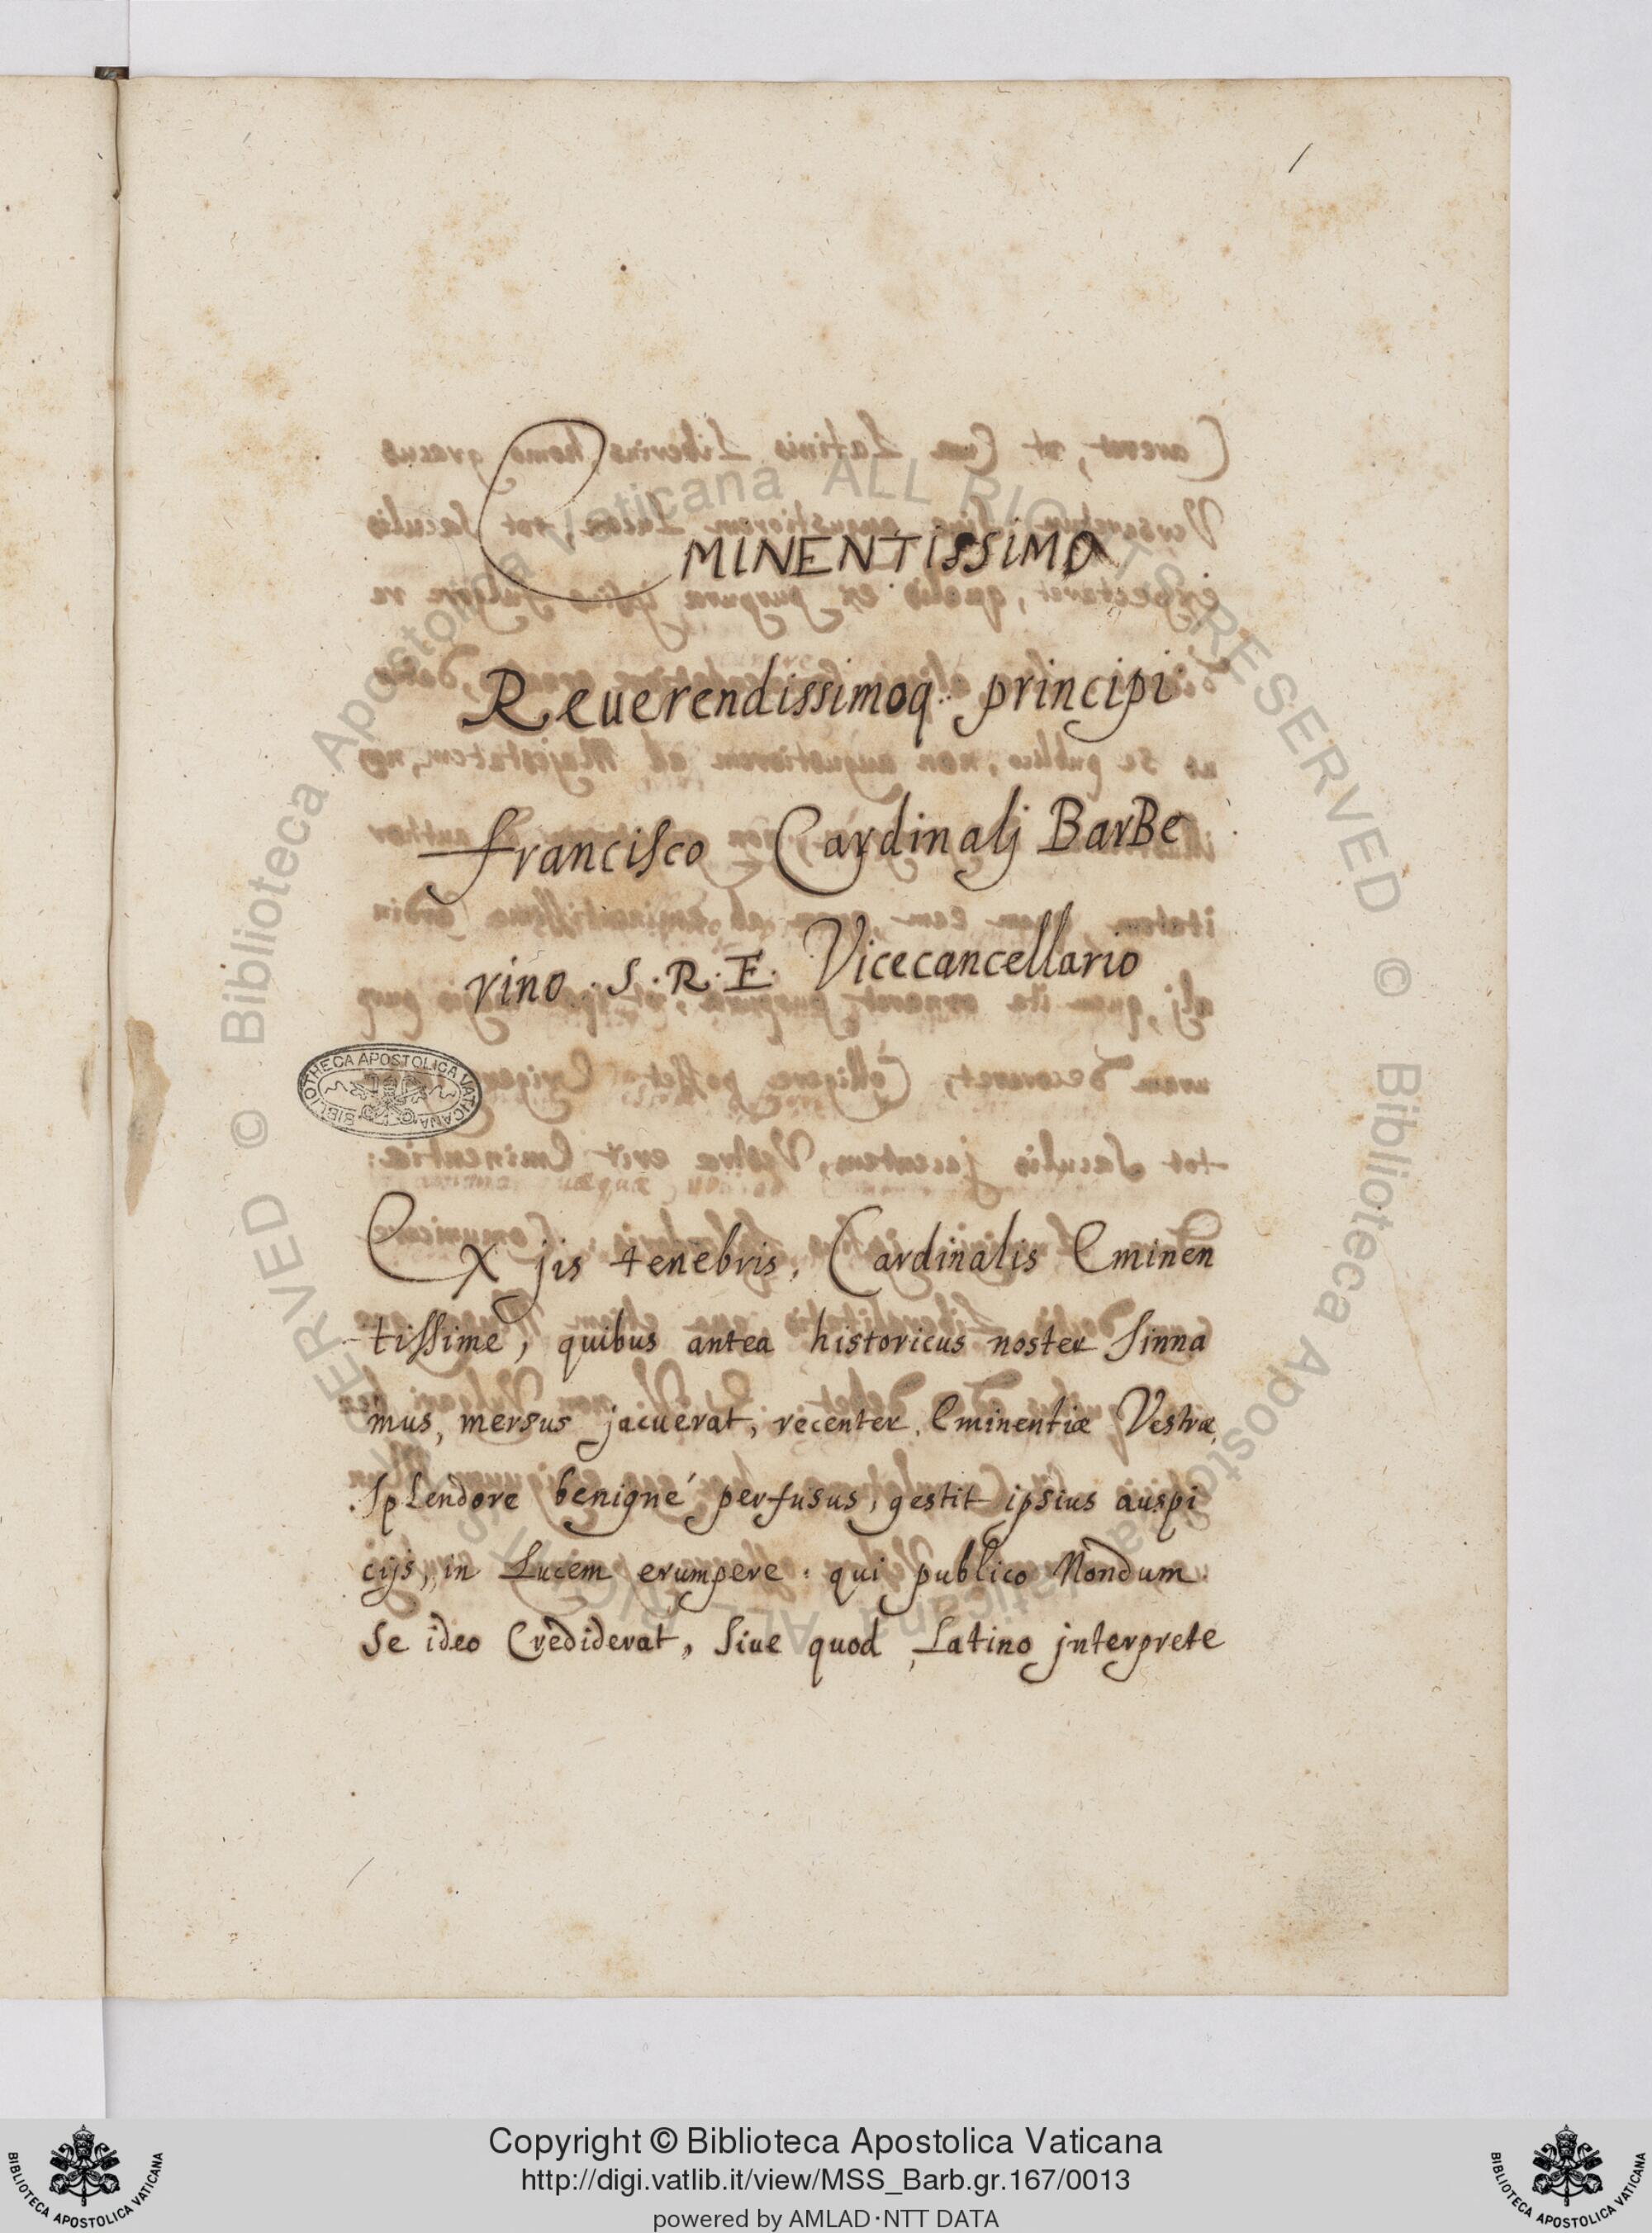 1
EMINENTISSIMO
Reuerendissimoq. principi
Francisco Cardinalj BarBe
rino. S. R. E. Vicecancellario
BIBLIOTHECA APOSTOLICA VATICANA
Ex jis tenebris, Cardinalis Eminen
tissime, quibus antea historicus noster Sinna
mus, mersus jacuerat, recenter Eminentiæ Vestræ
Splendore benigné perfusus, gestit ipsius auspi
cijs, in Lucem erumpere: qui publico Nondum
Se ideo Crediderat, Siue quod Latino jnterprete
© Biblioteca Apostolica Vaticana ALL RIGHTS RESERVED © Biblioteca Apostolica Vaticana ALL RIGHTS RESERVED
Copyright © Biblioteca Apostolica Vaticana
http://digi.vatlib.it/view/MSS_Barb.gr.167/0013
powered by AMLAD·NTT DATA
BIBLIOTECA APOSTOLICA VATICANA
BIBLIOTECA APOSTOLICA VATICANA